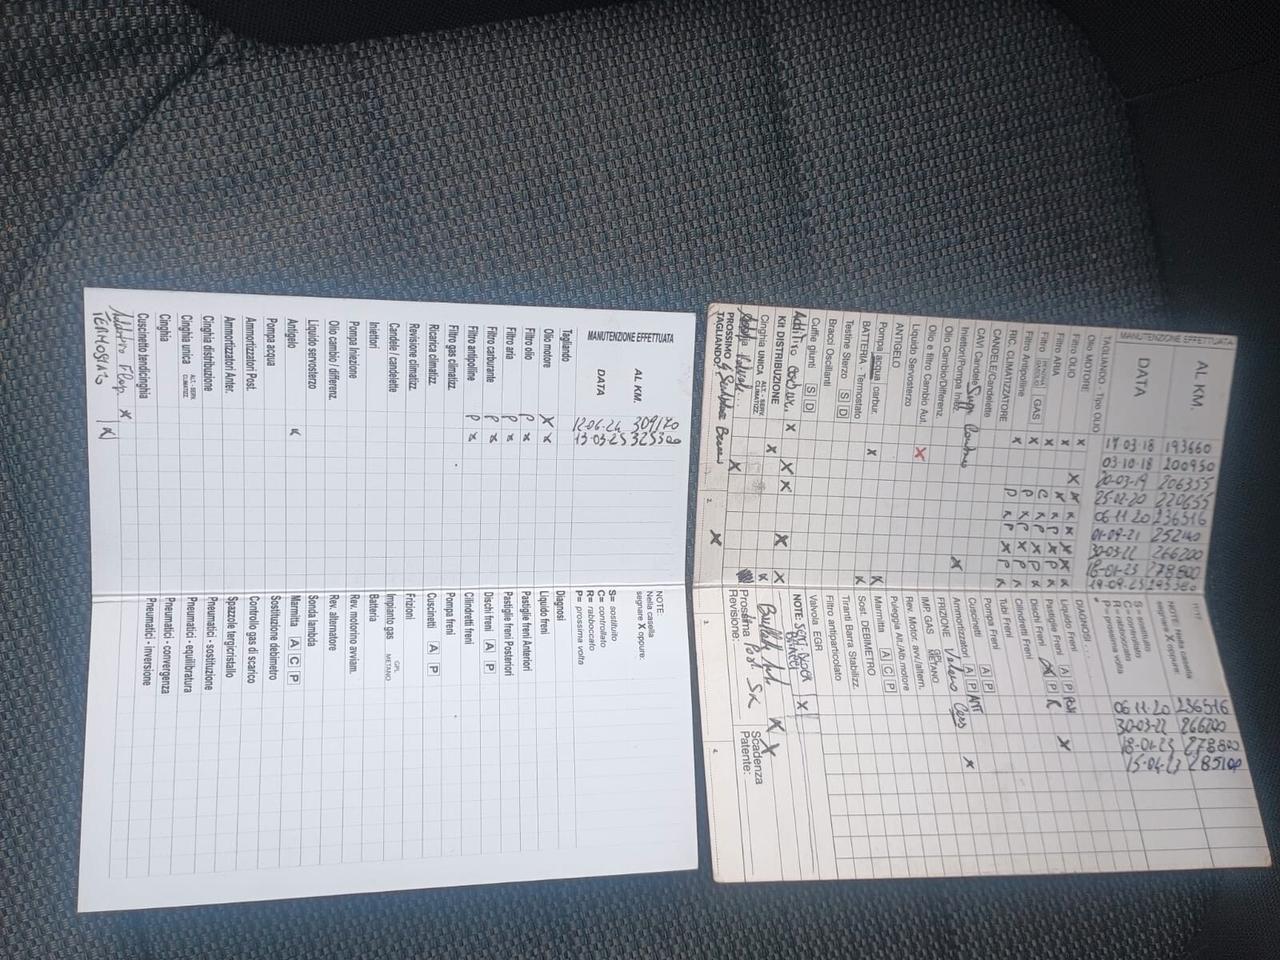 MANUTENZIONE EFFETTUATA
AL KM.
DATA
17-03-18 193660
03-10-18 200950
20-03-19 206355
25-02-20 220655
06 11 20 236516
01-09-21 252140
30-03-22 266200
18-01-23 278800
TAGLIANDO - Tipo OLIO
Olio MOTORE
Filtro OLIO
Filtro ARIA
Filtro GAS
Filtro Antipolline
RIC. CLIMATIZZATORE
CANDELE/Candelette
CAVI Candele
Iniettori/Pompa Iniez.
Olio Cambio/Differenz.
Olio e filtro Cambio Aut.
Liquido Servosterzo
ANTIGELO
Pompa acqua carbur.
BATTERIA - Termostato
Testine Sterzo S D
Bracci Oscillanti
Cuffie giunti S D
Kit DISTRIBUZIONE
Cinghia UNICA ALT.- SERV. CLIMATIZZ.
PROSSIMO TAGLIANDO:
NOTE: Nella casella
segnare X oppure:
S = sostituito
C = controllato
R = rabboccato
P = prossima volta
06 11 20 236516
30-03-22 266200
18-01-23 278800
15-04-23 285100
DIAGNOSI
Liquido Freni
Pastiglie Freni A P
Dischi Freni A P
Cilindretti Freni
Tubi Freni
Pompa Freni
Cuscinetti A P
Ammortizzatori A P ANT
FRIZIONE
IMP. GAS METANO
Rev. Motor. avv/altern.
Puleggia Alt./Alb.motore
Marmitta A C P
Sost. DEBIMETRO
Tiranti Barra Stabilizz.
Filtro antiparticolato
Valvola EGR
NOTE:
Prossima
Revisione:
Scadenza
Patente:
MANUTENZIONE EFFETTUATA
AL KM.
DATA
12-06-24 309170
13-03-25 325300
Tagliando
Olio motore
Filtro olio
Filtro aria
Filtro carburante
Filtro antipolline
Filtro gas climatizz.
Ricarica climatizz.
Revisione climatizz.
Candele / candelette
Iniettori
Pompa Iniezione
Olio cambio / differenz.
Liquido servosterzo
Antigelo
Pompa acqua
Ammortizzatori Post.
Ammortizzatori Anter.
Cinghia distribuzione
Cinghia unica ALT. - SERV. CLIMATIZZ.
Cinghia
Cuscinetto tendicinghia
NOTE:
Nella casella
segnare X oppure:
S= sostituito
C= controllato
R= rabboccato
P= prossima volta
Diagnosi
Liquido freni
Pastiglie freni Anteriori
Pastiglie freni Posteriori
Dischi freni A P
Cilindretti freni
Pompa freni
Cuscinetti A P
Frizioni
Impianto gas GPL METANO
Batteria
Rev. alternatore
Rev. motorino avviam.
Sonda lambda
Marmitta A C P
Sostituzione debimetro
Controllo gas di scarico
Spazzole tergicristallo
Pneumatici - sostituzione
Pneumatici - equilibratura
Pneumatici - convergenza
Pneumatici - inversione